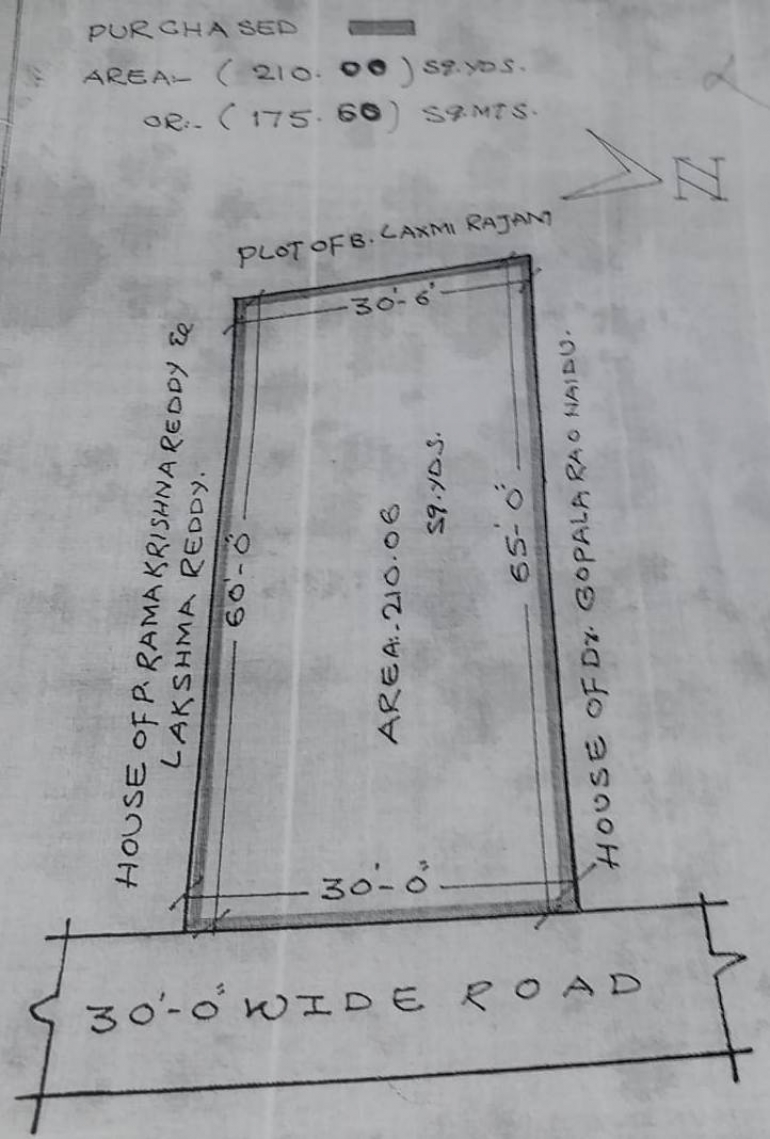 PURCHASED
AREA:- ( 210. 00 ) S9.YDS.
OR:- ( 175. 60 ) S9.MTS.
N
PLOT OF B. LAXMI RAJAM
30'- 6'
HOUSE OF P. RAMAKRISHNA REDDY &
LAKSHMA REDDY.
60'-0"
AREA:-210.06
S9.YDS.
65'-0"
HOUSE OF Dr. GOPALA RAO NAIDU.
30'- 0"
30'-0" WIDE ROAD